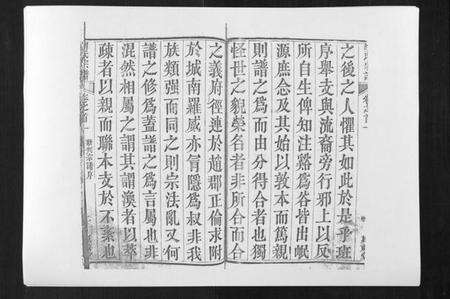 之後之人懼其如此於是乎班
序舉支與流裔旁行邪上以反
所自生俾知注谿爲谷皆出岷
源庶念及其始以敦本而篤親
則譜之爲而由分得合者也獨
怪世之貌榮名者非所合而合
之義府徑連於趙郡正倫求附
於城南羅威亦冒隱爲叔非我
族類强而同之則宗法亂又何
譜之修爲蓋譜之爲言屬也非
混然相屬之謂其謂渙者以萃
疎者以親而聯本支於不紊也